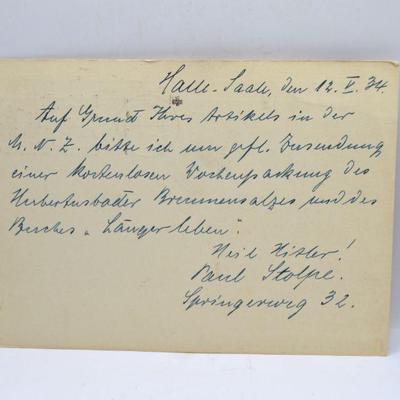 Halle-Saale, den 12. V. 34.
Auf Grund Ihres Artikels in der
M. N. Z. bitte ich um gefl. Zusendung
einer kostenlosen Wochenpackung des
Hubertusbader Brunnensalzes und des
Buches „Länger leben".
Heil Hitler!
Paul Stolpe.
Springerweg 32.